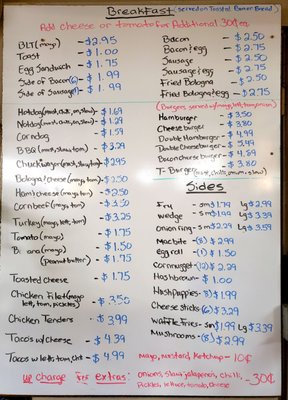 BreakFast (served on Toasted Corner Bread)
Add cheese or tomato for Additional 30¢ ea
BLT (mayo) - $2.95
Toast - $1.00
Egg Sandwich - $1.75
Side of Bacon - $1.99
Side of Sausage - $1.99
Bacon - $2.50
Bacon & egg - $2.75
Sausage - $2.50
Sausage & egg - $2.75
Fried Bologna - $2.50
Fried Bologna & egg - $2.75
Hotdog - $1.69
- $1.29
Corndog - $1.59
BBQ - $3.29
Chuckwagon - $2.95
Bologna/cheese (mayo, tom) - $2.50
Ham/cheese (mayo, tom) - $2.50
Corn beef (mayo, tom) - $3.50
Turkey (mayo, lett, tom) - $3.25
Tomato (mayo) - $1.75
Banana (mayo) - $1.50
(peanut butter) - $1.75
Toasted Cheese - $1.75
Chicken Filet (mayo, lett, tom, pickles) - $3.50
Chicken Tenders - $3.99
Tacos w/ Cheese - $4.39
Tacos w/ lett, tom, - $4.99
Hamburger - $3.50
Cheeseburger - $3.80
Double Hamburger - $4.99
Double Cheeseburger - $5.49
Bacon cheese burger - $4.89
T-Burger - $3.80
Sides
Fry - sm $1.79 Lg $2.99
wedge - sm $1.99 Lg $3.39
Onion ring - sm $2.29 Lg $3.59
Mac bite - (8) $2.99
Egg roll - (1) $1.50
Corn nugget - (12) $2.29
Hashbrown - $1.00
Hushpuppies - (8) $1.99
Cheese sticks (6) $3.29
Waffle fries - sm $1.99 Lg $3.39
Mushrooms - (8) $2.99
Mayo, mustard, Ketchup - 10¢
up charge For extras: Onions, Slaw, jalapeno's, Chili, Pickles, lettuce, tomato, Cheese - 30¢